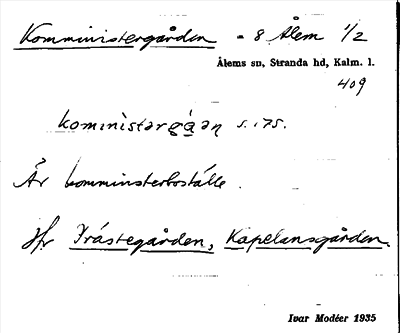 Komministergården - 8 Ålem 1/2
Ålems sn, Stranda hd, Kalm. l.
409
komınìstərgá̀əṇ s. 175.
Är komministerboställe.
Jfr Prästegården, Kapelansgården.
Ivar Modéer 1935